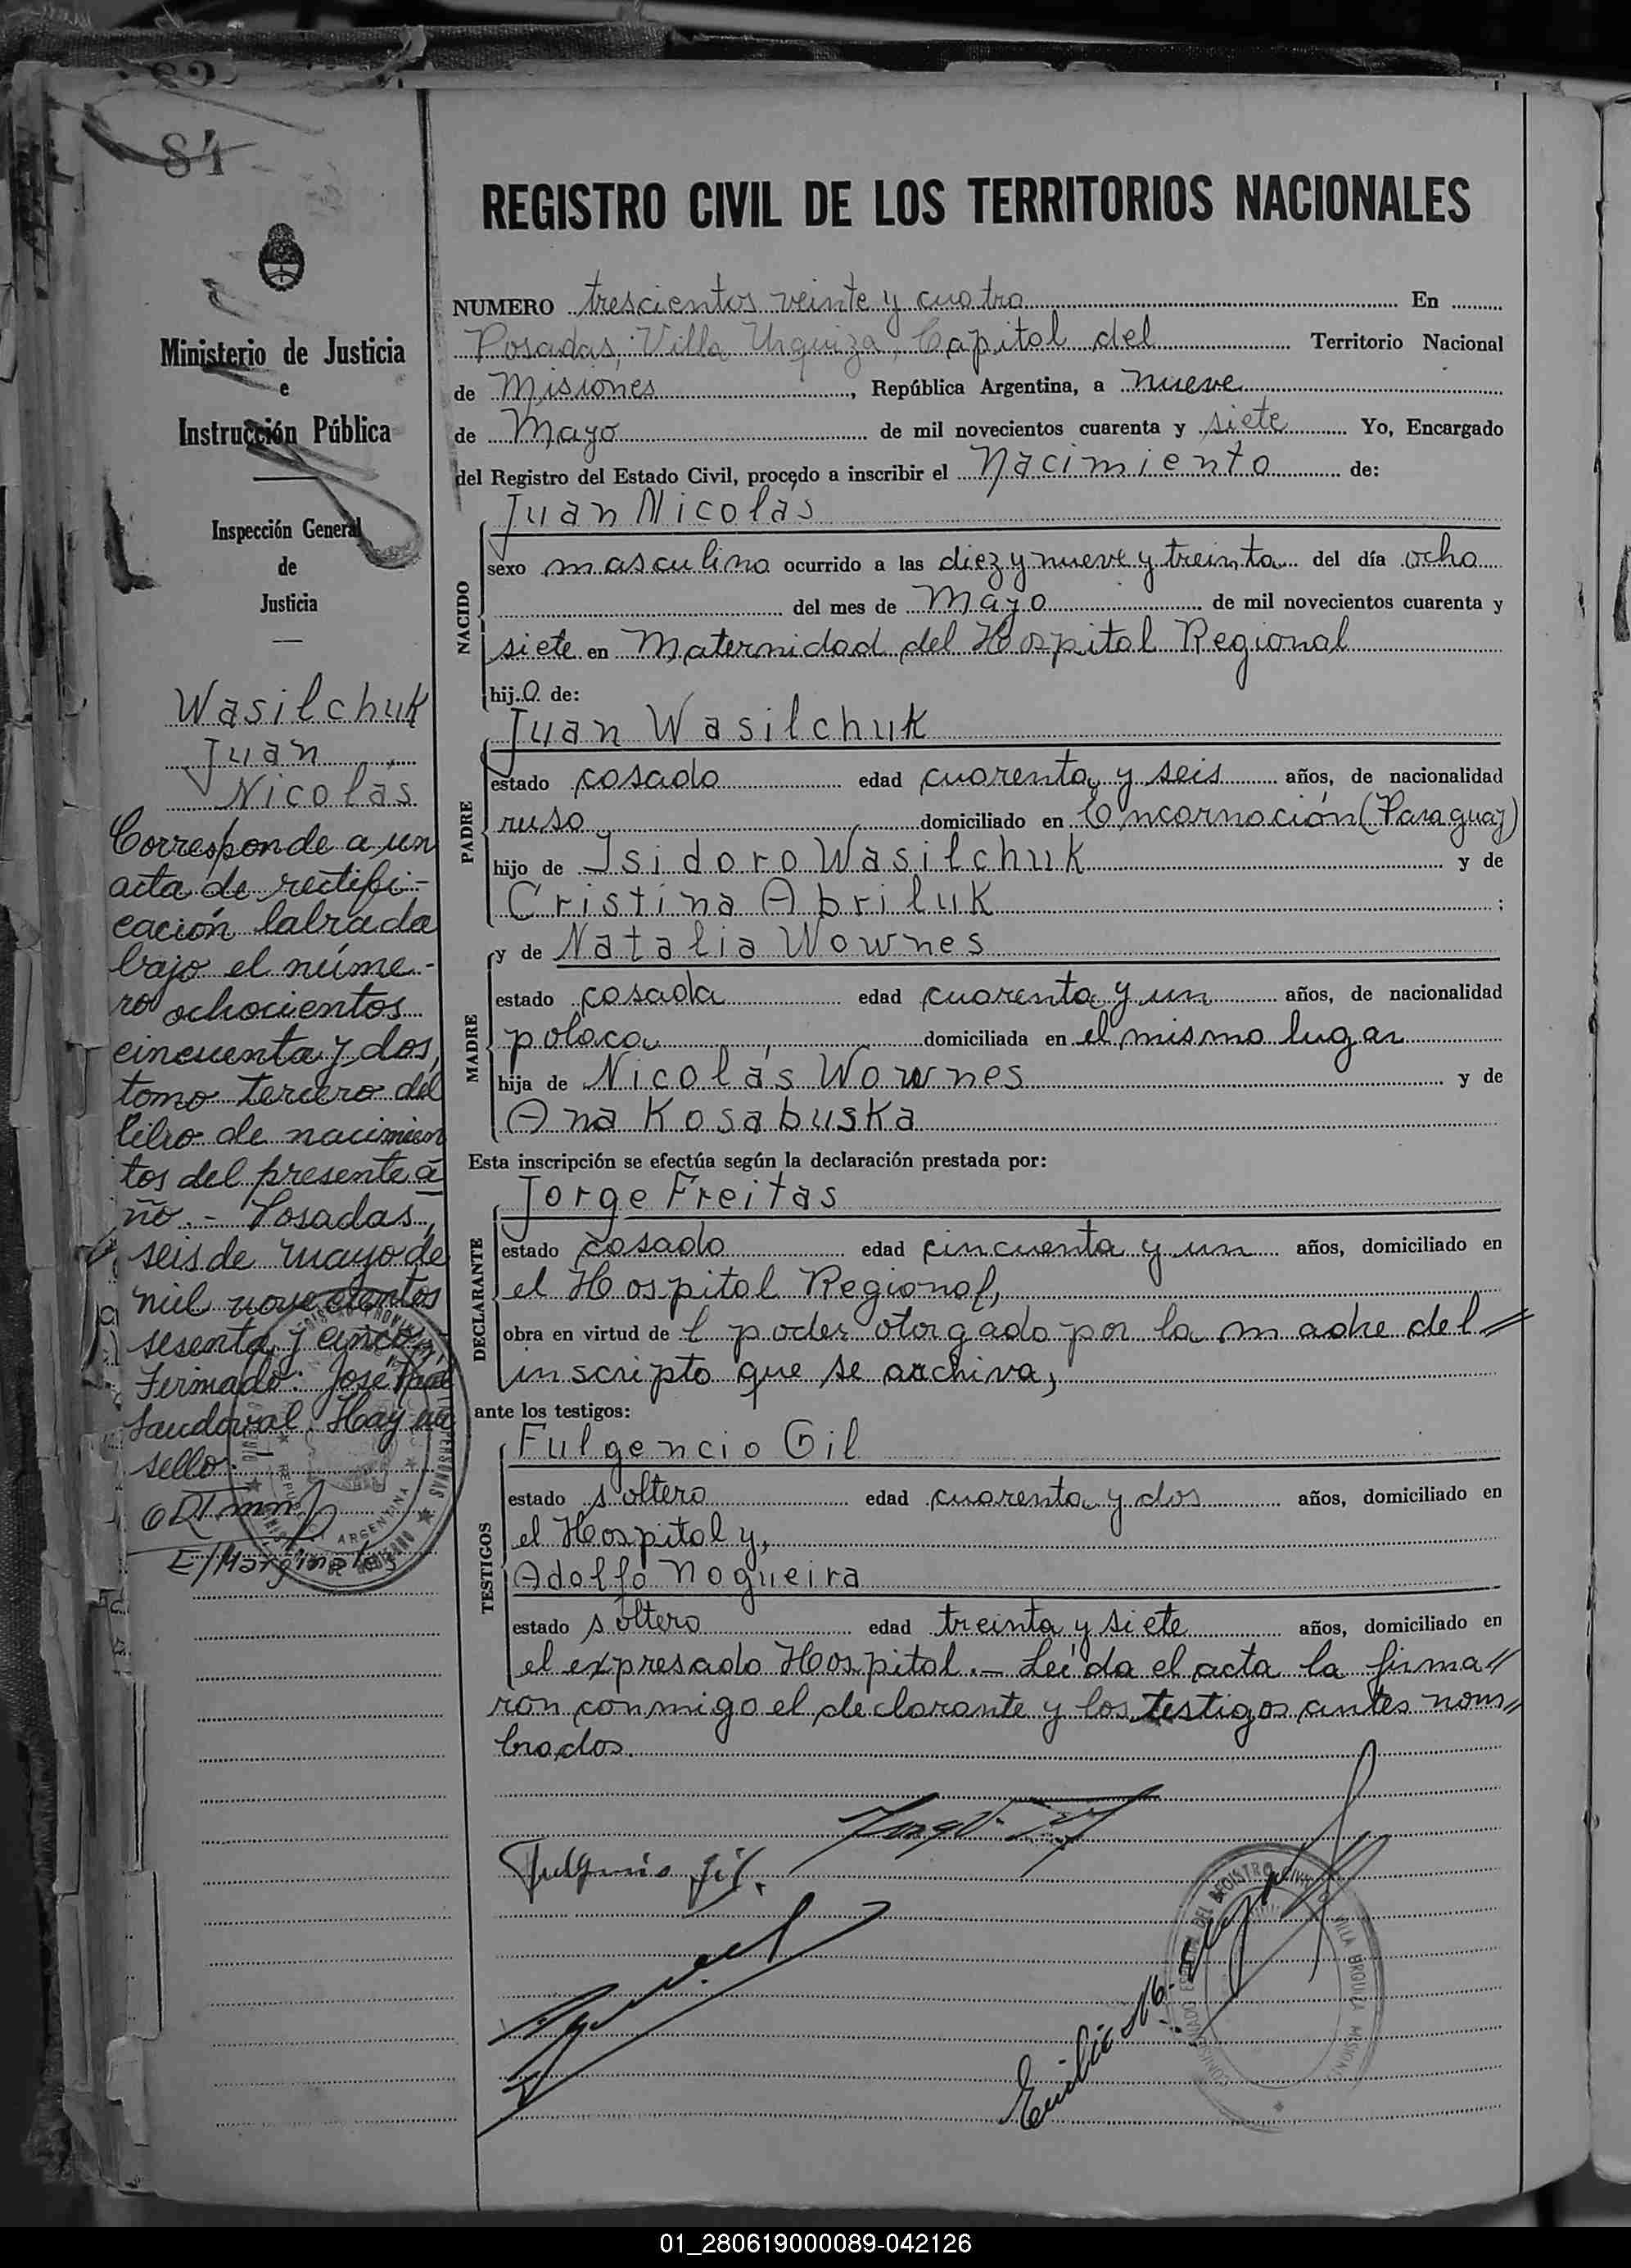 84
Ministerio de Justicia
e
Instrucción Pública
Inspección General
de
Justicia
Wasilchuk
Juan
Nicolás
Corresponde a un
acta de rectifi-
cación labrada
bajo el núme-
ro ochocientos
cincuenta y dos,
tomo tercero del
libro de nacimien
tos del presente a
ño.- Posadas,
seis de mayo de
mil novecientos
sesenta y cinco.
Firmado: José
Sandoval. Hay un
sello.
E/Marginales
REGISTRO CIVIL DE LOS TERRITORIOS NACIONALES
NUMERO trescientos veinte y cuatro En
Posadas, Villa Urquiza, Capital del Territorio Nacional
de Misiones, República Argentina, a nueve
de Mayo de mil novecientos cuarenta y siete Yo, Encargado
del Registro del Estado Civil, procedo a inscribir el Nacimiento de:
Juan Nicolás
NACIDO
sexo masculino ocurrido a las diez y nueve y treinta del día ocho
del mes de Mayo de mil novecientos cuarenta y
siete en Maternidad del Hospital Regional
hijo de:
Juan Wasilchuk
PADRE
estado casado edad cuarenta y seis años, de nacionalidad
ruso domiciliado en Encarnación (Paraguay)
hijo de Isidoro Wasilchuk y de
Cristina Abriluk;
y de Natalia Wownes
MADRE
estado casada edad cuarenta y un años, de nacionalidad
polaca domiciliada en el mismo lugar
hija de Nicolás Wownes y de
Ana Kosabuska
Esta inscripción se efectúa según la declaración prestada por:
Jorge Freitas
DECLARANTE
estado casado edad cincuenta y un años, domiciliado en
el Hospital Regional,
obra en virtud de l poder otorgado por la madre del//
inscripto que se archiva,
ante los testigos:
Fulgencio Gil
TESTIGOS
estado soltero edad cuarenta y dos años, domiciliado en
el Hospital y,
Adolfo Nogueira
estado soltero edad treinta y siete años, domiciliado en
el expresado Hospital.- Leída el acta la firma//
ron conmigo el declarante y los testigos antes nom//
brados.
Fulgencio Gil.
Emilio
01_280619000089-042126